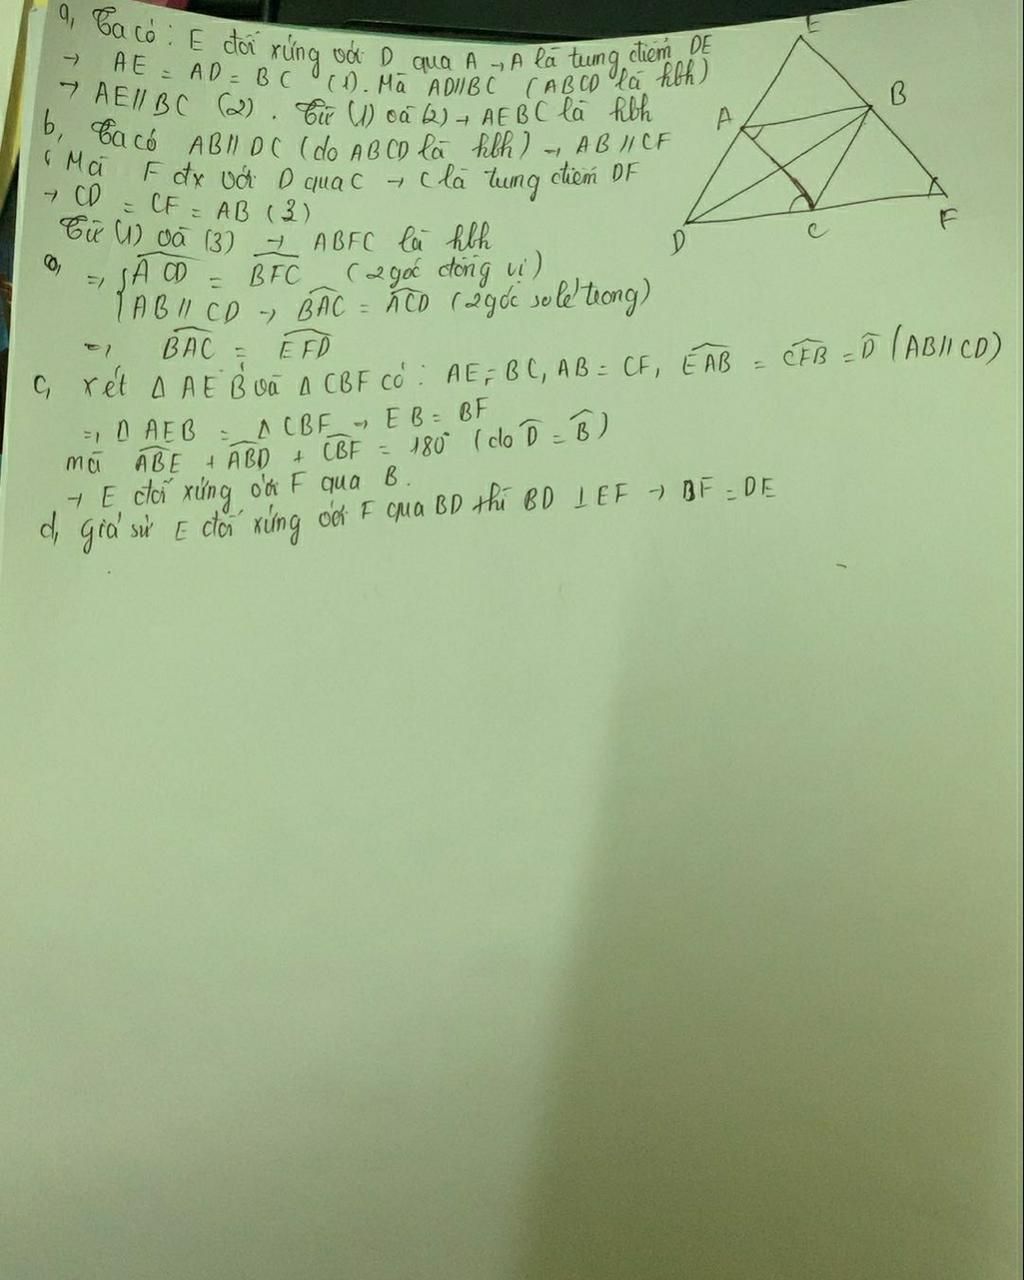 a, Ta có: E đối xứng với D qua A → A là tung điểm DE
→ AE = AD = BC (1). Mà AD//BC (ABCD là hbh)
→ AE // BC (2). Từ (1) và (2) → AEBC là hbh
b, Ta có AB // DC (do ABCD là hbh) → AB // CF
Mà F đx với D qua C → C là tung điểm DF
→ CD = CF = AB (3)
Từ (1) và (3) → ABFC là hbh
=> { ACD = BFC (2 góc đồng vị)
AB // CD → BAC = ACD (2 góc so le trong)
=> BAC = EFD
c, xét Δ AEB và Δ CBF có: AE = BC, AB = CF, EAB = CFB = D (AB//CD)
=> Δ AEB = Δ CBF → EB = BF
mà ABE + ABD + CBF = 180° (do D = B)
→ E đối xứng với F qua B.
d, giả sử E đối xứng với F qua BD thì BD ⊥ EF → DF = DE
E
A
B
D
C
F